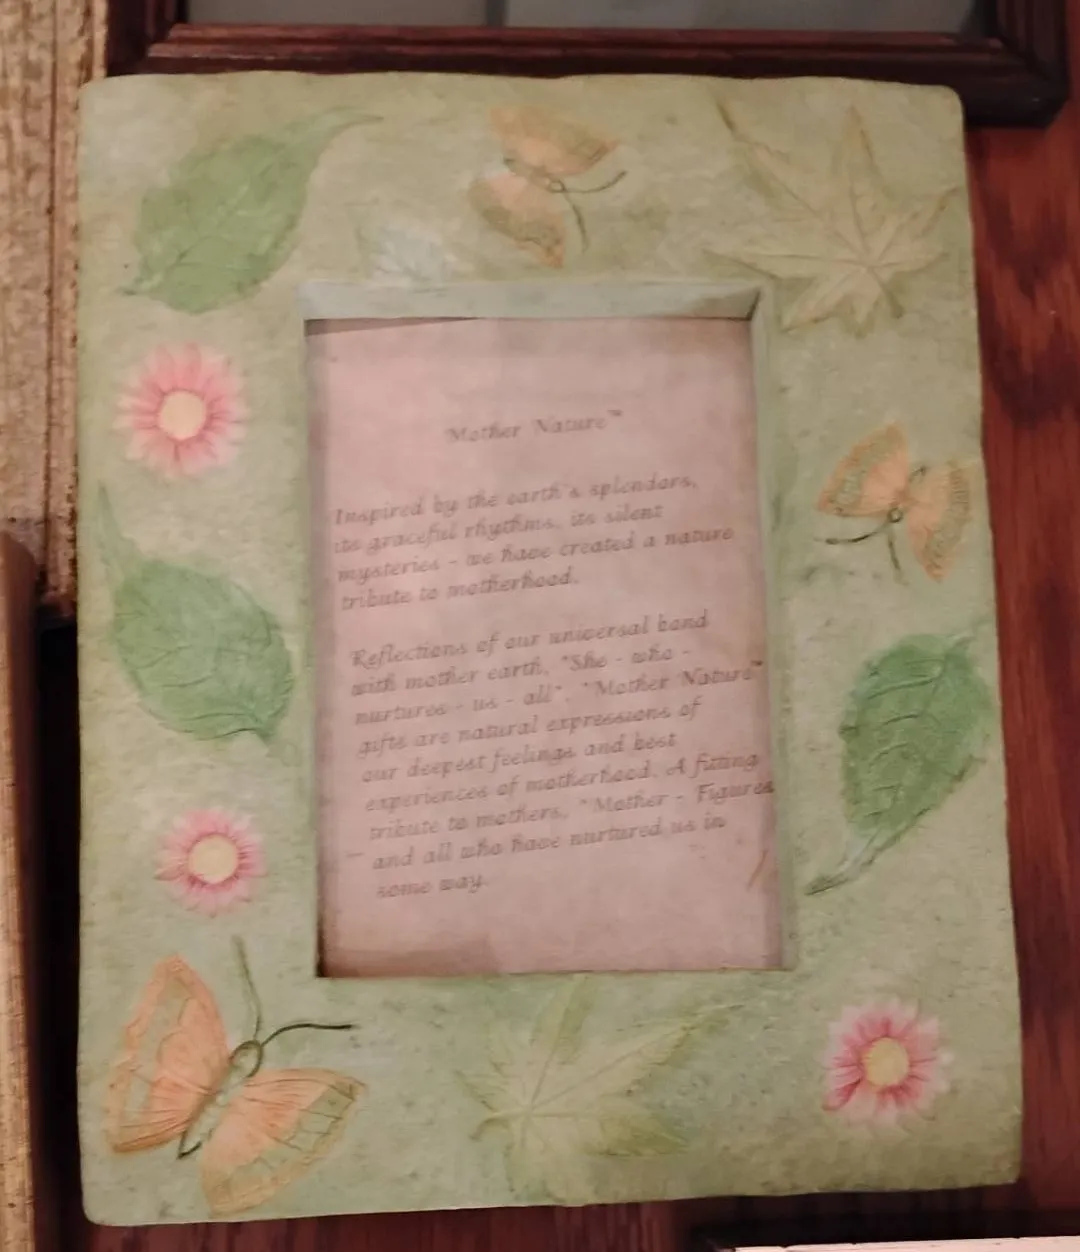 Mother Nature™
Inspired by the earth's splendors,
its graceful rhythms, its silent
mysteries - we have created a nature
tribute to motherhood.
Reflections of our universal bond
with mother earth, "She - who -
nurtures - us - all". "Mother Nature™
gifts are natural expressions of
our deepest feelings and best
experiences of motherhood. A fitting
tribute to mothers, "Mother - Figures
and all who have nurtured us in
some way.